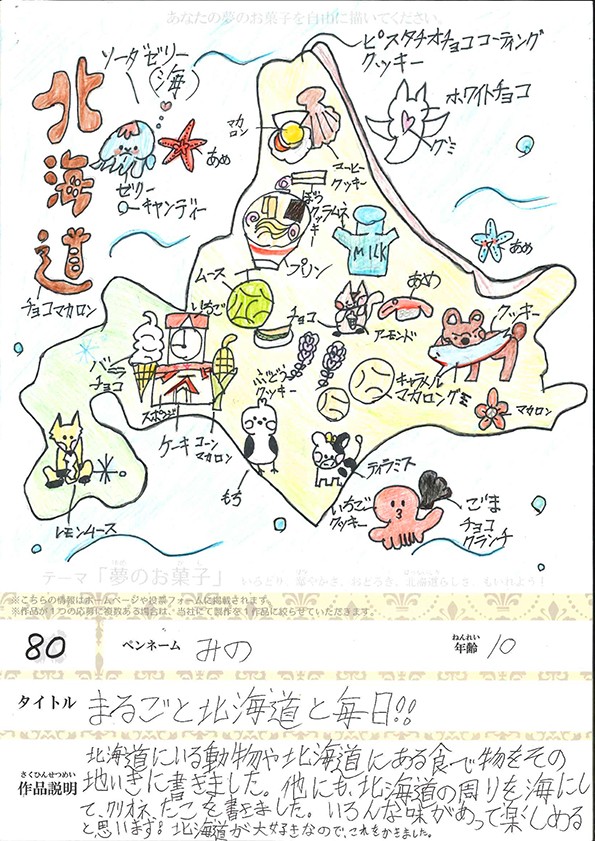 あなたの夢のお菓子を自由に描いてください。
北海道
チョコマカロン
ソーダゼリー
(海)
あめ
ゼリー
キャンディー
ピスタチオチョココーティング
クッキー
ホワイトチョコ
グミ
マカロン
コーヒー
クッキー
ラムネ
プリン
MILK
あめ
ムース
いちご
チョコ
あめ
アーモンド
クッキー
バニラ
チョコ
スポンジ
ケーキ
コーン
マカロン
ぶどう
クッキー
キャラメル
マカロングミ
マカロン
レモンムース
もち
ティラミス
いちご
クッキー
ごま
チョコ
クランチ
テーマ「夢のお菓子」 いろどり、華やかさ、おどろき、北海道らしさ、もいれよう!
※こちらの情報はホームページや投票フォームに掲載されます
※作品が1つの応募に複数ある場合は、当社にて製作を1作品に絞らせていただきます。
80 ペンネーム みの ねんれい 年齢 10
タイトル まるごと北海道と毎日!!
さくひんせつめい
作品説明
北海道にいる動物や北海道にある食べ物をその
地いきに書きました。他にも、北海道の周りを海にし
て、クリオネ、たこを書きました。いろんな味があって楽しめる
と思います!北海道が大好きなので、これをかきました。